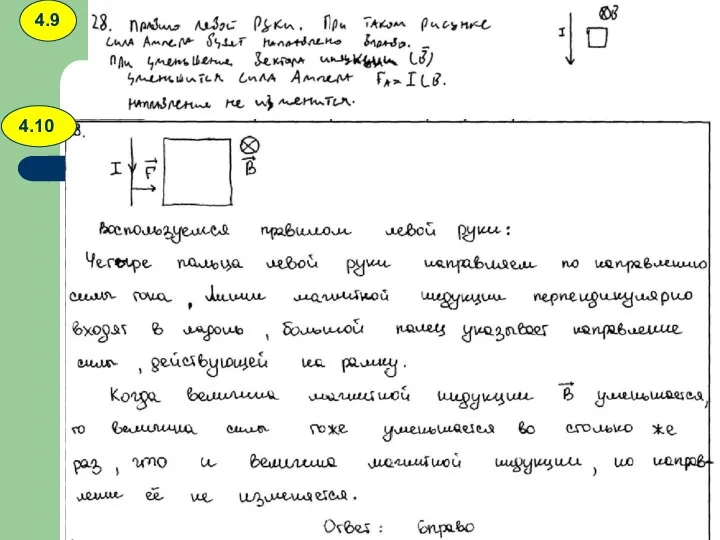 4.9
28. Правило левой руки. При таком рисунке
сила Ампера будет направлено вправо.
При уменьшение вектора индукции (B⃗)
уменьшится сила Ампера Fₐ = ILB.
направление не изменится.
I
⊗B
4.10
I F⃗ ⊗ B⃗
Воспользуемся правилом левой руки:
Четыре пальца левой руки направляем по направлению
силы тока, линии магнитной индукции перпендикулярно
входят в ладонь, большой палец указывает направление
силы, действующей на рамку.
Когда величина магнитной индукции B⃗ уменьшается,
то величина силы тоже уменьшается во столько же
раз, что и величина магнитной индукции, но направ-
ление её не изменяется.
Ответ: вправо